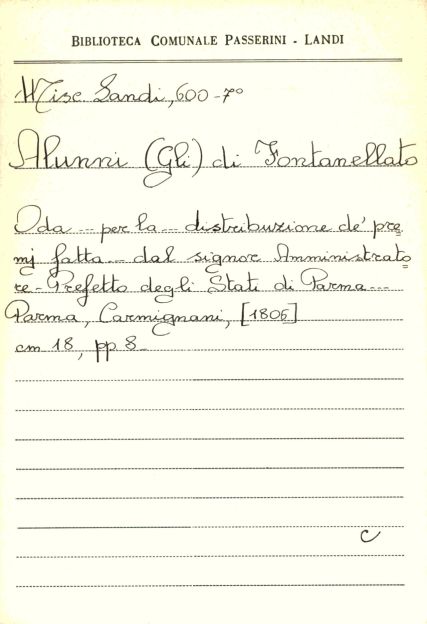 BIBLIOTECA COMUNALE PASSERINI - LANDI
Misc. Landi, 600-7°
Alunni (Gli) di Fontanellato
Oda ... per la ... distribuzione de' pre
mj fatta ... dal signor Amministrato
re - Prefetto degli Stati di Parma ...
Parma, Carmignani, [1806]
cm 18, pp. 8 -
C